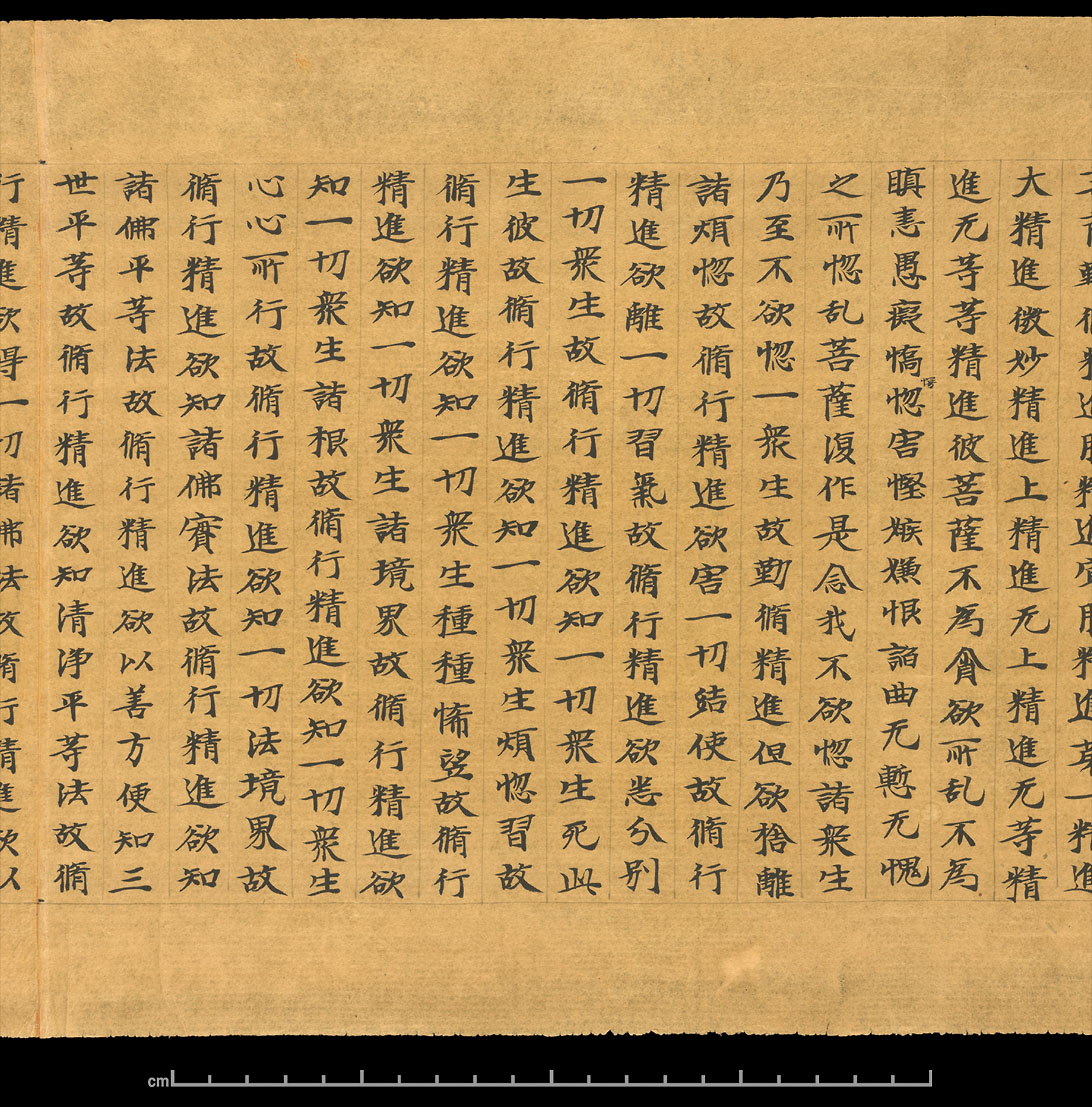 精進勝精進最勝精進第一精進
大精進微妙精進上精進无上精進无等精
進无等等精進彼菩薩不為貪欲所乱不為
瞋恚愚癡憍慢惚害慳嫉嫌恨諂曲无慙无愧
之所惚乱菩薩復作是念我不欲惚諸衆生
乃至不欲惚一衆生故勤脩精進但欲捨離
諸煩惚故脩行精進欲害一切結使故脩行
精進欲離一切習氣故脩行精進欲悉分別
一切衆生故脩行精進欲知一切衆生死此
生彼故脩行精進欲知一切衆生煩惚習故
脩行精進欲知一切衆生種種悕望故脩行
精進欲知一切衆生諸境界故脩行精進欲
知一切衆生諸根故脩行精進欲知一切衆生
心心所行故脩行精進欲知一切法境界故
脩行精進欲知諸佛實法故脩行精進欲知
諸佛平等法故脩行精進欲以善方便知三
世平等故脩行精進欲知清浄平等法故脩
行精進欲得一切諸佛法故脩行精進欲以
cm